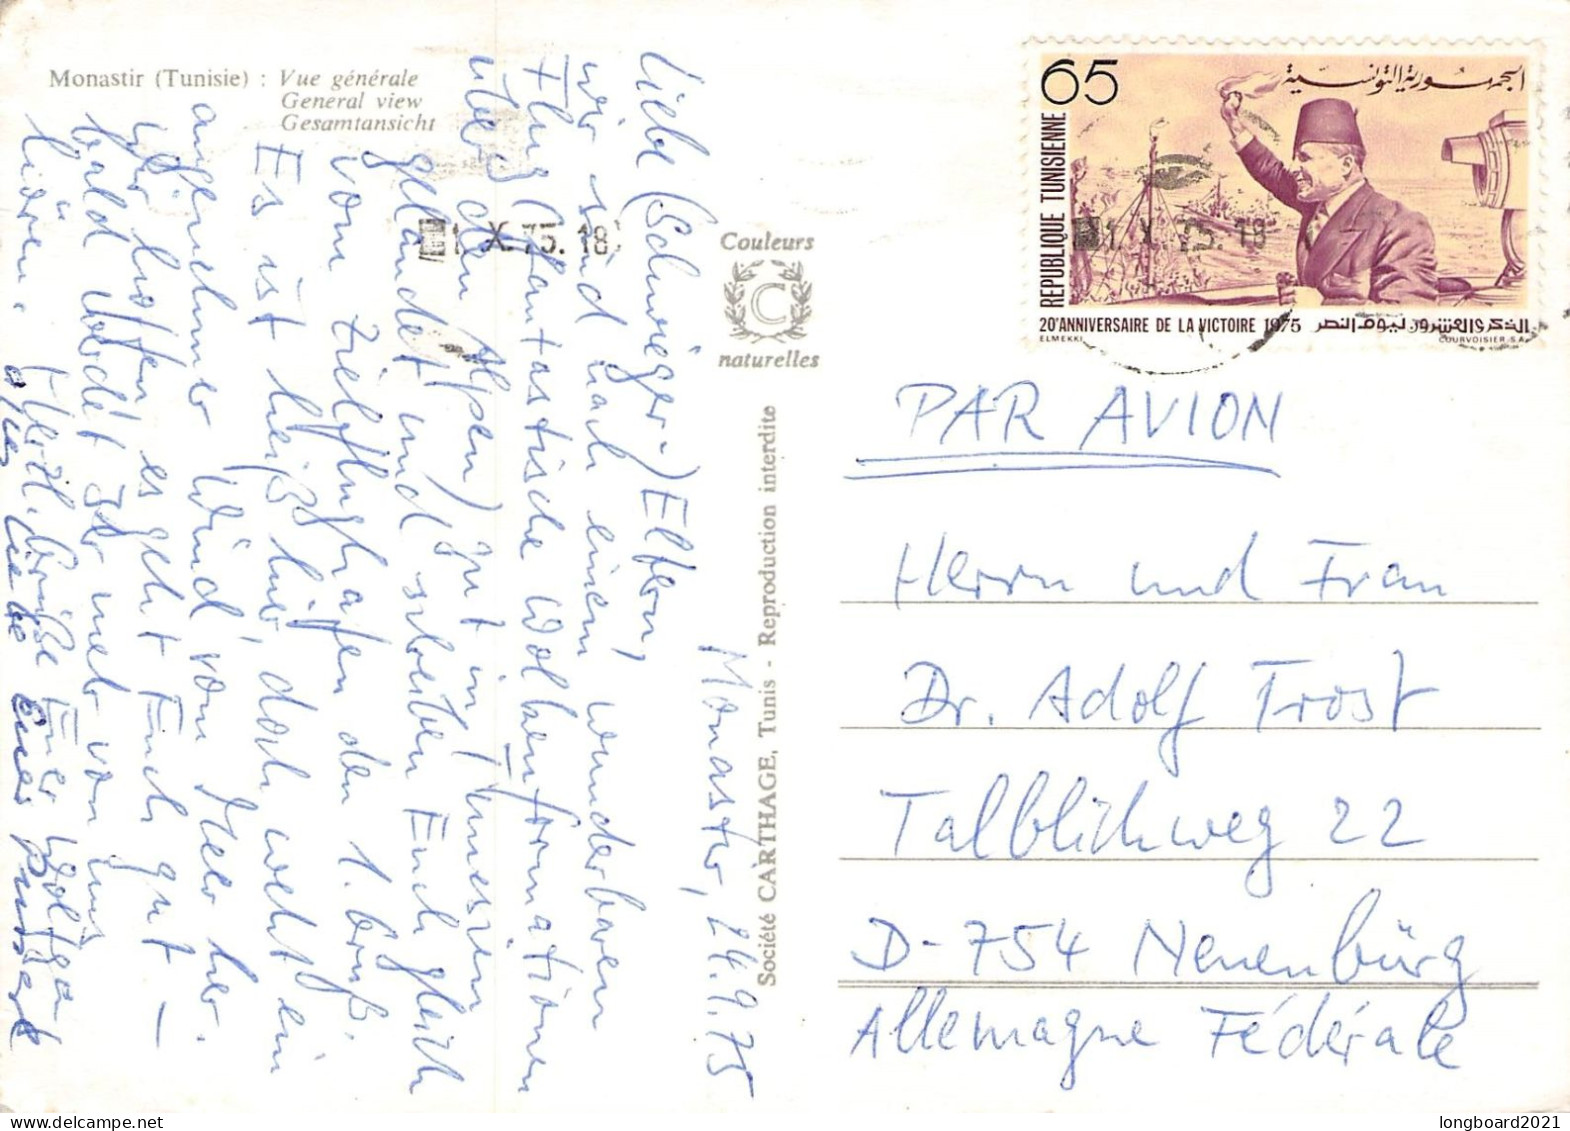 Monastir (Tunisie) : Vue générale
General view
Gesamtansicht
Monastir, 24.9.75
Liebe (Schwieger-) Eltern,
wir sind nach einem wunderbaren
Flug (fantastische Wolkenformationen
über den Alpen) gut in Tunesien
gelandet und schreiben Euch gleich
vom Zielflughafen den 1. Gruß.
Es ist heiß hier, doch weht ein
angenehmer Wind vom Meer her.
Wir hoffen es geht Euch gut –
bald werdet Ihr mehr von uns
hören. Herzl. Grüße Euer Wolfgang
Liebe
Couleurs
C
naturelles
Société CARTHAGE, Tunis - Reproduction interdite
1. X. 75. 18
65
الجمهورية التونسية
REPUBLIQUE TUNISIENNE
1. X. 75. 18
20ᵉ ANNIVERSAIRE DE LA VICTOIRE 1975 الذكرى العشرون ليوم النصر
ELMEKKI
COURVOISIER S.A.
PAR AVION
Herrn und Frau
Dr. Adolf Trost
Talblickweg 22
D-754 Neuenbürg
Allemagne Fédérale
longboard2021